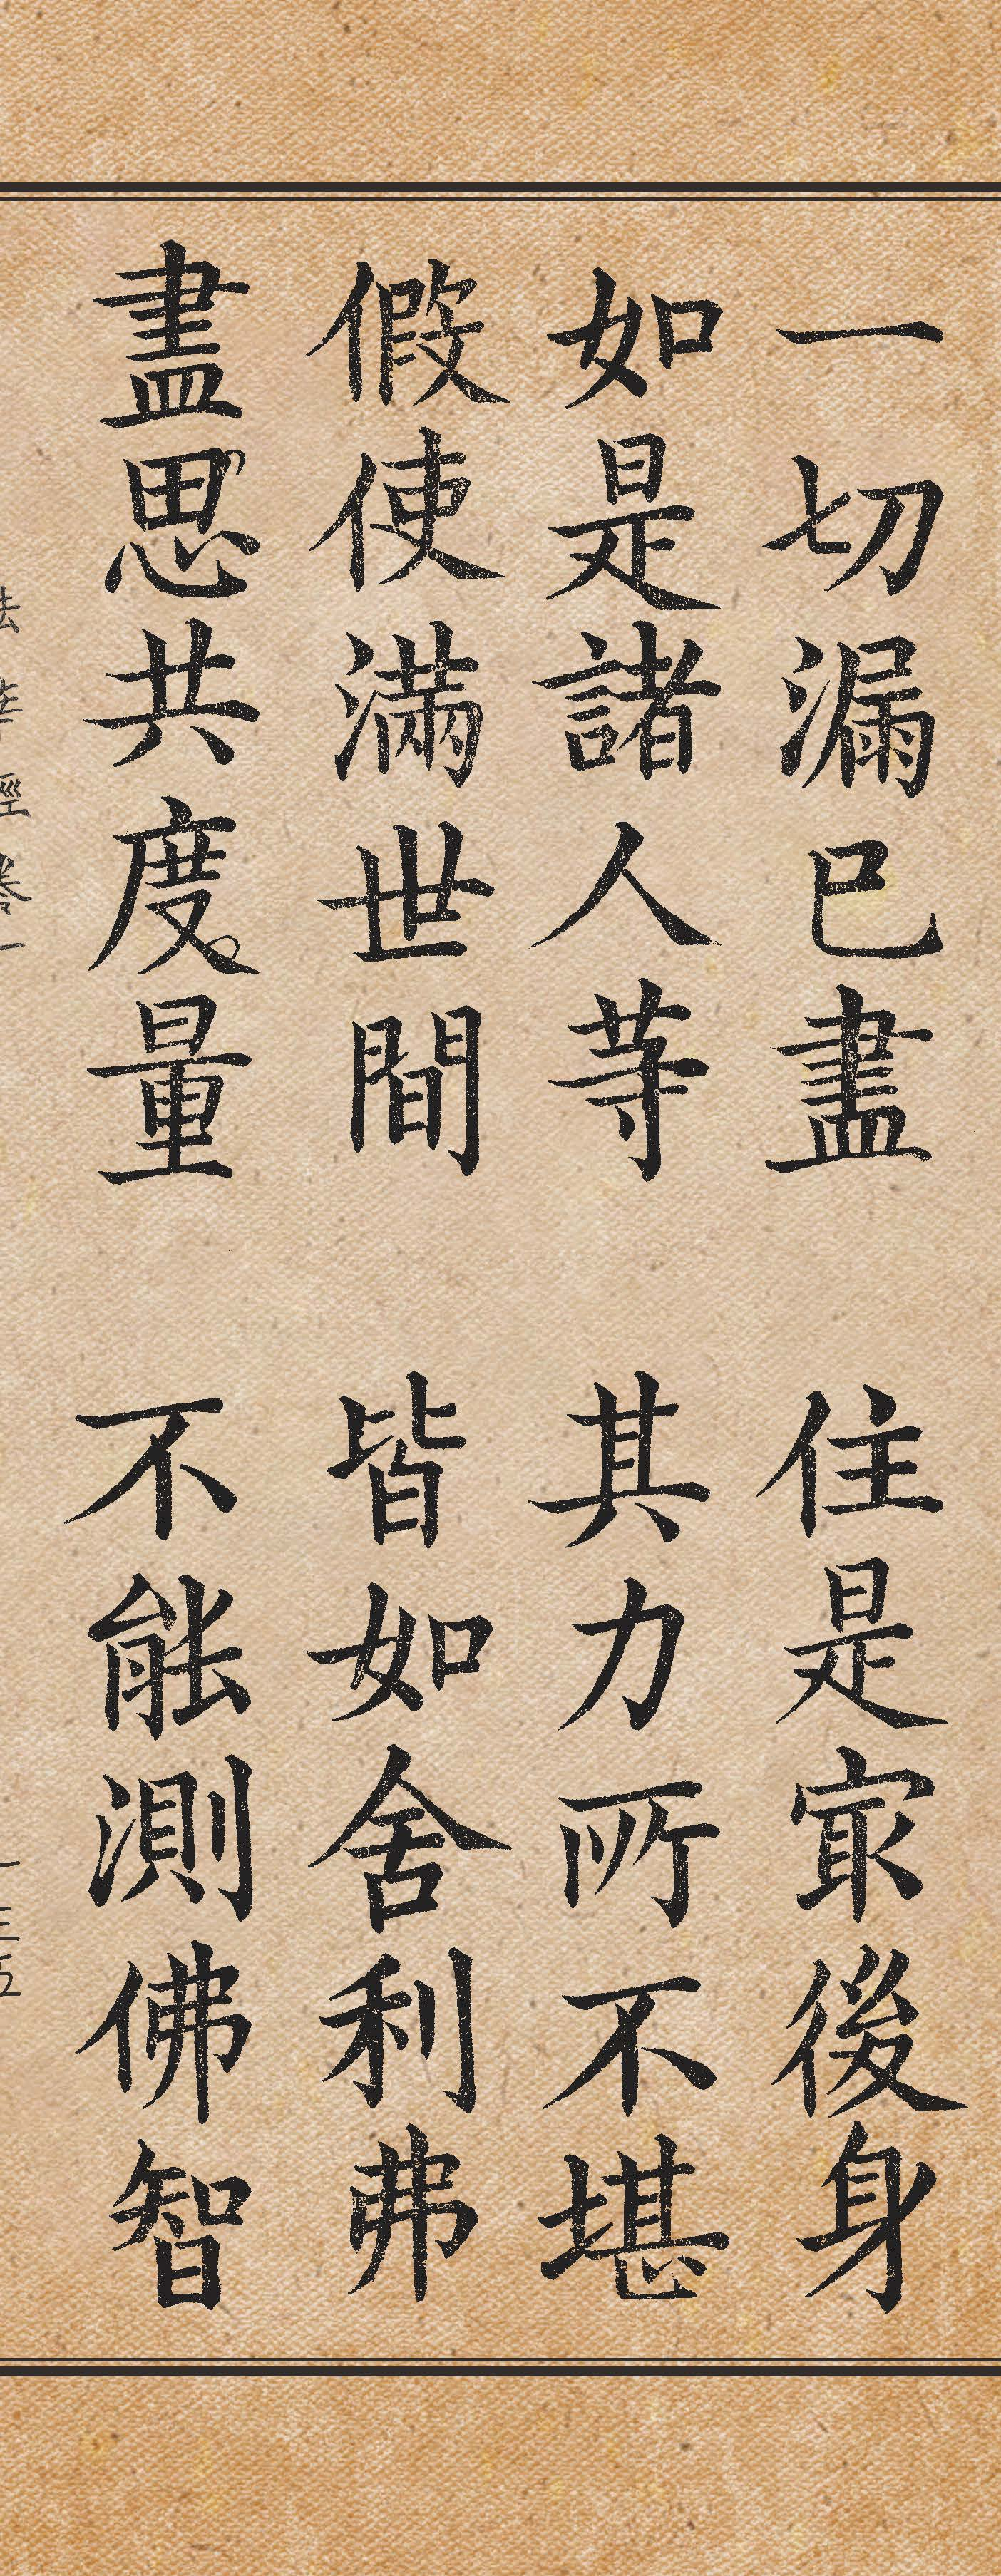 一切漏已盡　住是㝡後身
如是諸人等　其力所不堪
假使滿世間　皆如舍利弗
盡思共度量　不能測佛智
法華經卷一　一三五